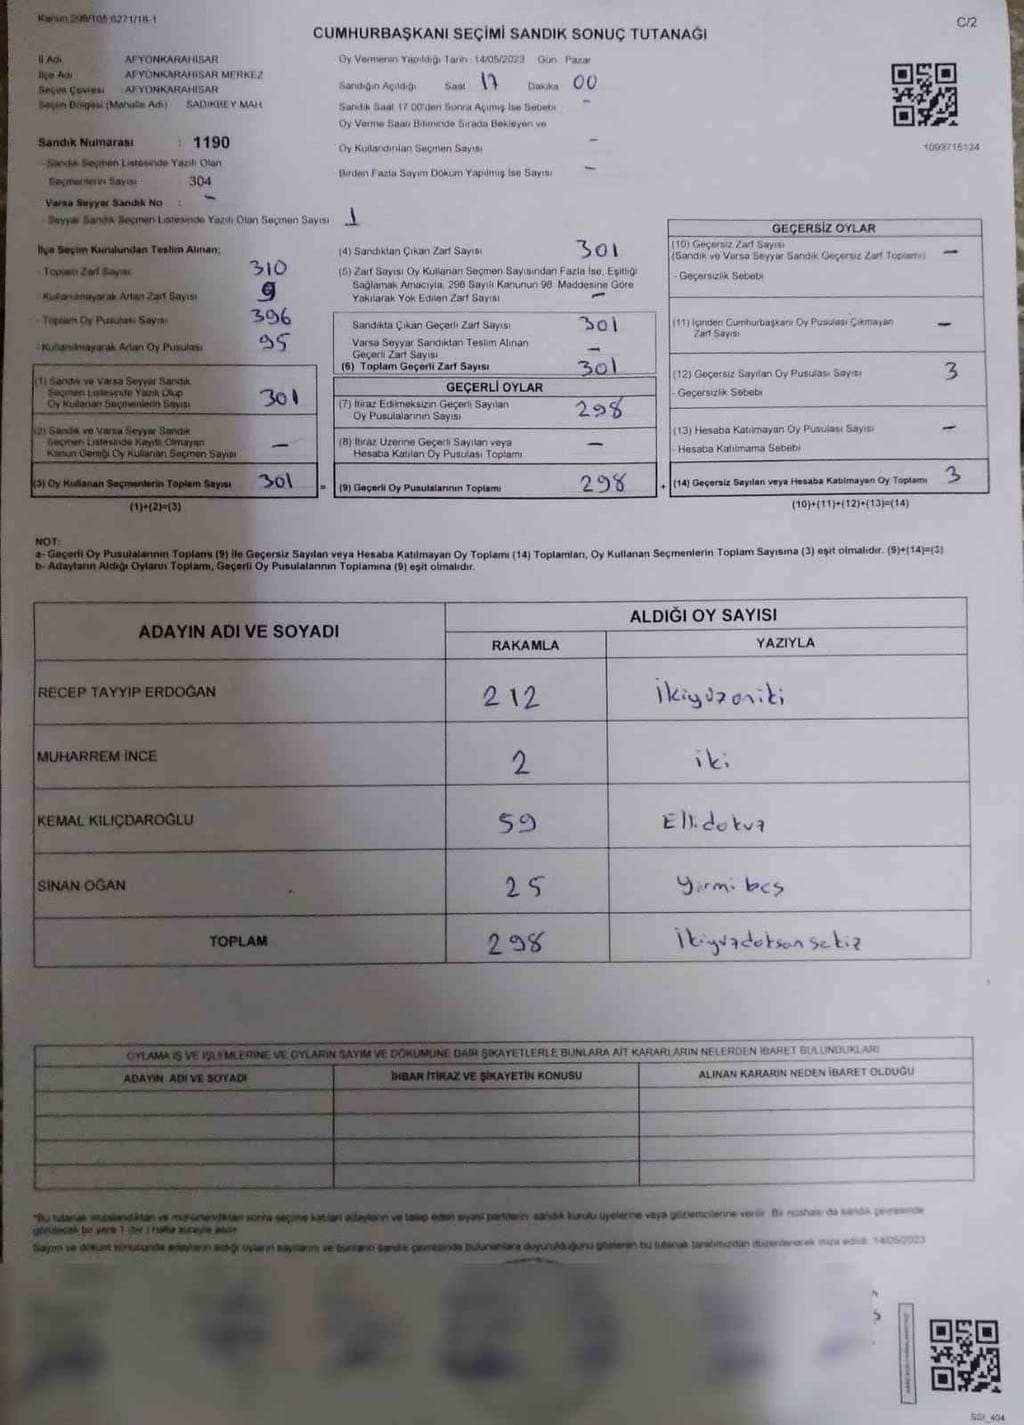 Kanun:298/105 6271/18-1
C/2
CUMHURBAŞKANI SEÇİMİ SANDIK SONUÇ TUTANAĞI
İl Adı AFYONKARAHİSAR
İlçe Adı AFYONKARAHİSAR MERKEZ
Seçim Çevresi : AFYONKARAHİSAR
Seçim Bölgesi (Mahalle Adı) SADIKBEY MAH.
Sandık Numarası : 1190
Sandık Seçmen Listesinde Yazılı Olan
Seçmenlerin Sayısı 304
Varsa Seyyar Sandık No : -
- Seyyar Sandık Seçmen Listesinde Yazılı Olan Seçmen Sayısı 1
Oy Vermenin Yapıldığı Tarih : 14/05/2023 Gün Pazar
Sandığın Açıldığı Saat 17 Dakika 00
Sandık Saat 17.00'den Sonra Açılmış İse Sebebi -
Oy Verme Saati Bitiminde Sırada Bekleyen ve
Oy Kullandırılan Seçmen Sayısı -
Birden Fazla Sayım Döküm Yapılmış İse Sayısı -
1093715124
İlçe Seçim Kurulundan Teslim Alınan;
- Toplam Zarf Sayısı 310
- Kullanılmayarak Artan Zarf Sayısı 9
- Toplam Oy Pusulası Sayısı 396
- Kullanılmayarak Artan Oy Pusulası 95
(1) Sandık ve Varsa Seyyar Sandık
Seçmen Listesinde Yazılı Olup
Oy Kullanan Seçmenlerin Sayısı 301
(2) Sandık ve Varsa Seyyar Sandık
Seçmen Listesinde Kayıtlı Olmayan
Kanun Gereği Oy Kullanan Seçmen Sayısı -
(3) Oy Kullanan Seçmenlerin Toplam Sayısı 301 =
(1)+(2)=(3)
(4) Sandıktan Çıkan Zarf Sayısı 301
(5) Zarf Sayısı Oy Kullanan Seçmen Sayısından Fazla İse, Eşitliği
Sağlamak Amacıyla, 298 Sayılı Kanunun 98. Maddesine Göre
Yakılarak Yok Edilen Zarf Sayısı -
Sandıkta Çıkan Geçerli Zarf Sayısı 301
Varsa Seyyar Sandıktan Teslim Alınan
Geçerli Zarf Sayısı -
(6) Toplam Geçerli Zarf Sayısı 301
GEÇERLİ OYLAR
(7) İtiraz Edilmeksizin Geçerli Sayılan
Oy Pusulalarının Sayısı 298
(8) İtiraz Üzerine Geçerli Sayılan veya
Hesaba Katılan Oy Pusulası Toplamı -
(9) Geçerli Oy Pusulalarının Toplamı 298 +
GEÇERSİZ OYLAR
(10) Geçersiz Zarf Sayısı
(Sandık ve Varsa Seyyar Sandık Geçersiz Zarf Toplamı) -
- Geçersizlik Sebebi
(11) İçinden Cumhurbaşkanı Oy Pusulası Çıkmayan
Zarf Sayısı -
(12) Geçersiz Sayılan Oy Pusulası Sayısı 3
- Geçersizlik Sebebi
(13) Hesaba Katılmayan Oy Pusulası Sayısı -
- Hesaba Katılmama Sebebi
(14) Geçersiz Sayılan veya Hesaba Katılmayan Oy Toplamı 3
(10)+(11)+(12)+(13)=(14)
NOT:
a- Geçerli Oy Pusulalarının Toplamı (9) ile Geçersiz Sayılan veya Hesaba Katılmayan Oy Toplamı (14) Toplamları, Oy Kullanan Seçmenlerin Toplam Sayısına (3) eşit olmalıdır. (9)+(14)=(3)
b- Adayların Aldığı Oyların Toplamı, Geçerli Oy Pusulalarının Toplamına (9) eşit olmalıdır.
ADAYIN ADI VE SOYADI
ALDIĞI OY SAYISI
RAKAMLA YAZIYLA
RECEP TAYYİP ERDOĞAN 212 İkiyüzoniki
MUHARREM İNCE 2 iki
KEMAL KILIÇDAROĞLU 59 Ellidokuz
SİNAN OĞAN 25 Yirmi beş
TOPLAM 298 İkiyüzdoksansekiz
OYLAMA İŞ VE İŞLEMLERİNE VE OYLARIN SAYIM VE DÖKÜMÜNE DAİR ŞİKAYETLERLE BUNLARA AİT KARARLARIN NELERDEN İBARET BULUNDUKLARI
ADAYIN ADI VE SOYADI İHBAR İTİRAZ VE ŞİKAYETİN KONUSU ALINAN KARARIN NEDEN İBARET OLDUĞU
*Bu tutanak imzalandıktan ve mühürlendikten sonra seçime katılan adayların ve talep eden siyasi partilerin sandık kurulu üyelerine veya gözlemcilerine verilir. Bir nüshası da sandık çevresinde
görülecek bir yere 1 (bir) hafta süreyle asılır.
Sayım ve döküm sonucunda adayların aldığı oyların sayılarını ve bunların sandık çevresinde bulunanlara duyurulduğunu gösteren bu tutanak tarafımızdan düzenlenerek imza edildi. 14/05/2023